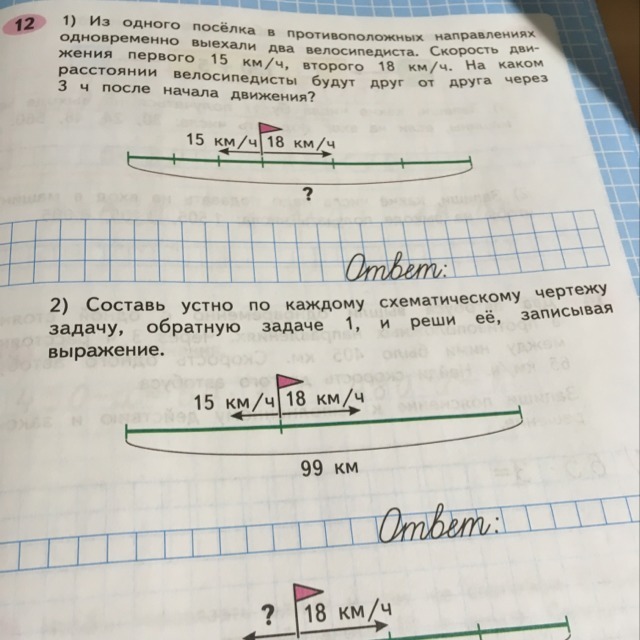 12
1) Из одного посёлка в противоположных направлениях
одновременно выехали два велосипедиста. Скорость дви-
жения первого 15 км/ч, второго 18 км/ч. На каком
расстоянии велосипедисты будут друг от друга через
3 ч после начала движения?
15 км/ч 18 км/ч
?
Ответ:
2) Составь устно по каждому схематическому чертежу
задачу, обратную задаче 1, и реши её, записывая
выражение.
15 км/ч 18 км/ч
99 км
Ответ:
? 18 км/ч